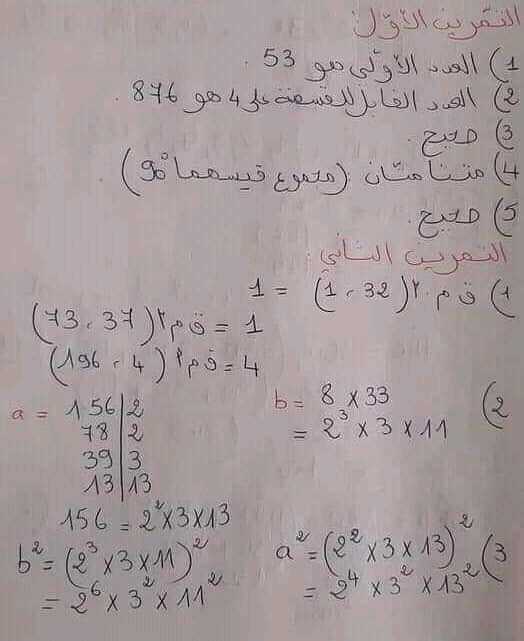 التمرين الأوّل:
1) العدد الأوّلي هو 53.
2) العدد القابل للقسمة على 4 هو 876.
3) صحيح.
4) متتامّتان (مجموع قيسهما 90°)
5) صحيح.
التمرين الثاني:
1) ق م أ (32 ، 1) = 1
ق م أ (37 ، 73) = 1
ق م أ (4 ، 196) = 4
2) b = 8 x 33
= 2³ x 3 x 11
a = 156 | 2
78 | 2
39 | 3
13 | 13
156 = 2² x 3 x 13
3) a² = (2² x 3 x 13)²
= 2⁴ x 3² x 13²
b² = (2³ x 3 x 11)²
= 2⁶ x 3² x 11²